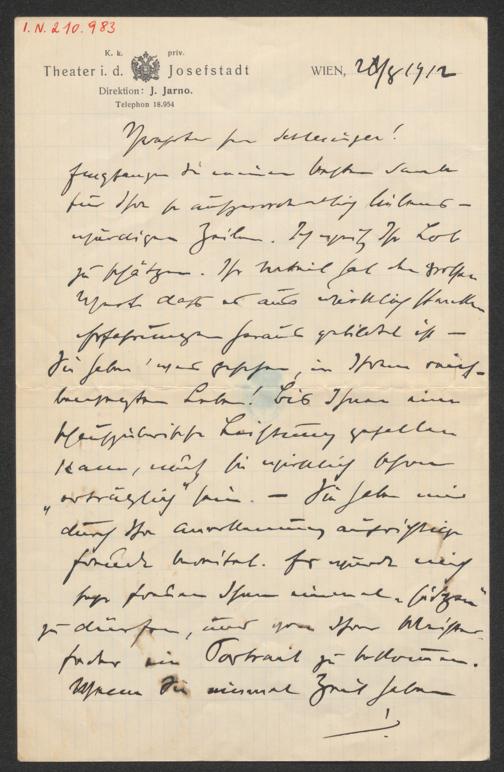 I. N. 210.983
K. k. priv.
Theater i. d. Josefstadt
Direktion: J. Jarno.
Telephon 18.954
WIEN, /8 1912
Herr Schlesinger!
Empfangen Sie meinen besten Dank
für Ihre so außerordentlich liebens-
würdigen Zeilen. Ich weiß Ihr Lob
zu schätzen. Ihr Urteil hat den großen
Wert daß es aus wirklich starken
Erfahrungen heraus gebildet ist –
Sie haben was gesehen, in Ihrem reich-
bewegten Leben! Bis Ihnen eine
schauspielerische Leistung gefallen
kann, muß sie wirklich schon
„erträglich" sein. – Sie haben mir
durch Ihre Anerkennung aufrichtige
Freude bereitet. Es würde mich
sehr freuen Ihnen einmal „sitzen"
zu dürfen, und von Ihrer Meister-
feder ein Portrait zu bekommen.
Wenn Sie einmal Zeit haben
!